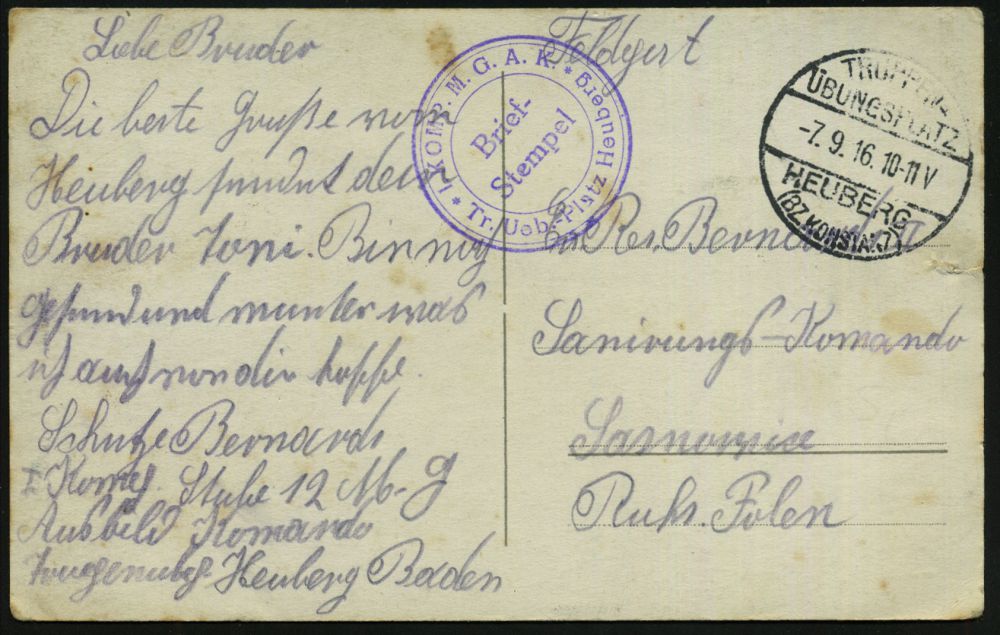 Liebe Bruder
Die beste Gruße vom
Heuberg sendet dein
Bruder Toni. Binnig
gesund und munter was
ich auch von dir hoffe.
Schutze Bernards
I Komp. Stube 12 M-G
Ausbild Komando
Heuberg Baden
Feldpost
I. KOMP. M. G. A. K. * Tr. Ueb.-Platz Heuberg *
Brief-
Stempel
TRUPPEN-
ÜBUNGSPLATZ
-7.9.16.10-11 V
HEUBERG
(BZ. KONSTANZ)
Res Bernard
Sanirungs-Komando
Sarnowice
Russ. Polen